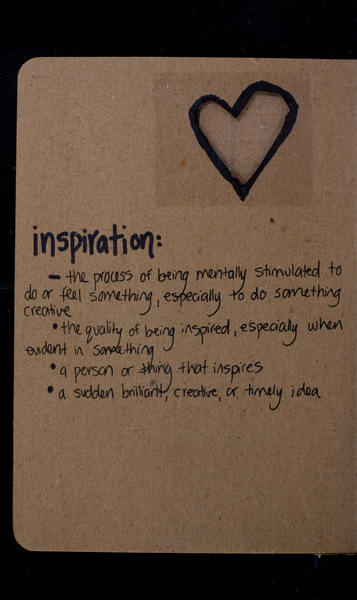 inspiration:
– the process of being mentally stimulated to
do or feel something, especially to do something
creative
• the quality of being inspired, especially when
evident in something
• a person or thing that inspires
• a sudden brilliant, creative, or timely idea